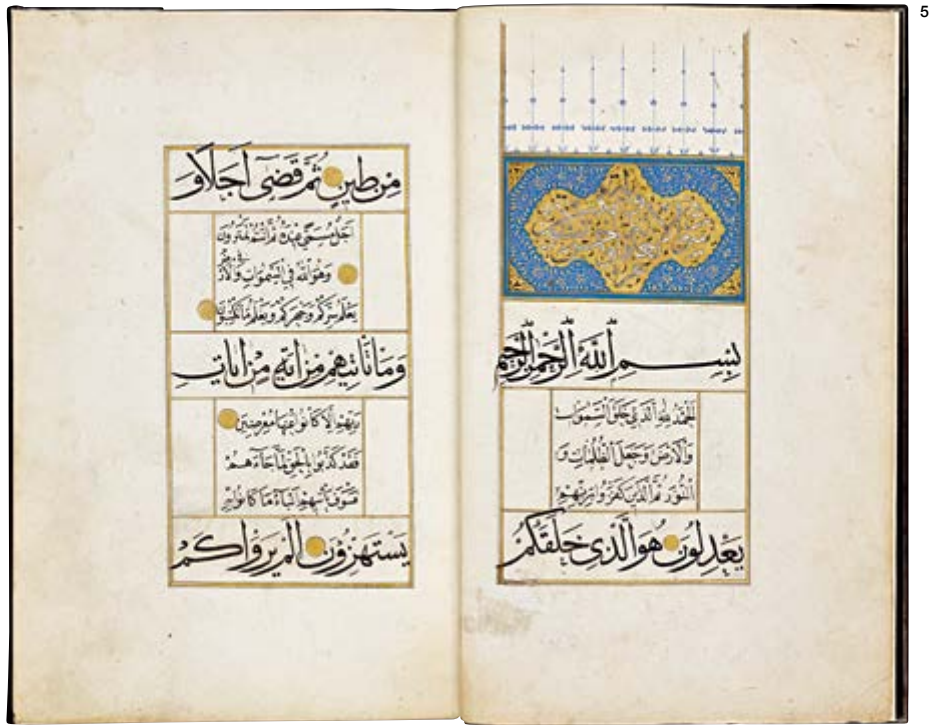 5
بِسْمِ اللهِ الرَّحْمٰنِ الرَّحِيمِ
اَلْحَمْدُ لِلهِ الَّذِي خَلَقَ السَّمٰوَاتِ
وَالْاَرْضَ وَجَعَلَ الظُّلُمَاتِ وَ
النُّورَ ثُمَّ الَّذِينَ كَفَرُوا بِرَبِّهِمْ
يَعْدِلُونَ هُوَ الَّذِى خَلَقَكُمْ
مِنْ طِينٍ ثُمَّ قَضٰى اَجَلًا وَ
اَجَلٌ مُسَمًّى عِنْدَهُ ثُمَّ اَنْتُمْ تَمْتَرُونَ
وَهُوَ اللهُ فِي السَّمٰوَاتِ وَفِي الْاَرْضِ
يَعْلَمُ سِرَّكُمْ وَجَهْرَكُمْ وَيَعْلَمُ مَا تَكْسِبُونَ
وَمَا تَأْتِيهِمْ مِنْ اٰيَةٍ مِنْ اٰيَاتِ
رَبِّهِمْ اِلَّا كَانُوا عَنْهَا مُعْرِضِينَ
فَقَدْ كَذَّبُوا بِالْحَقِّ لَمَّا جَاءَهُمْ
فَسَوْفَ يَأْتِيهِمْ اَنْبَاءُ مَا كَانُوا بِهِ
يَسْتَهْزِؤُنَ اَلَمْ يَرَوْا كَمْ